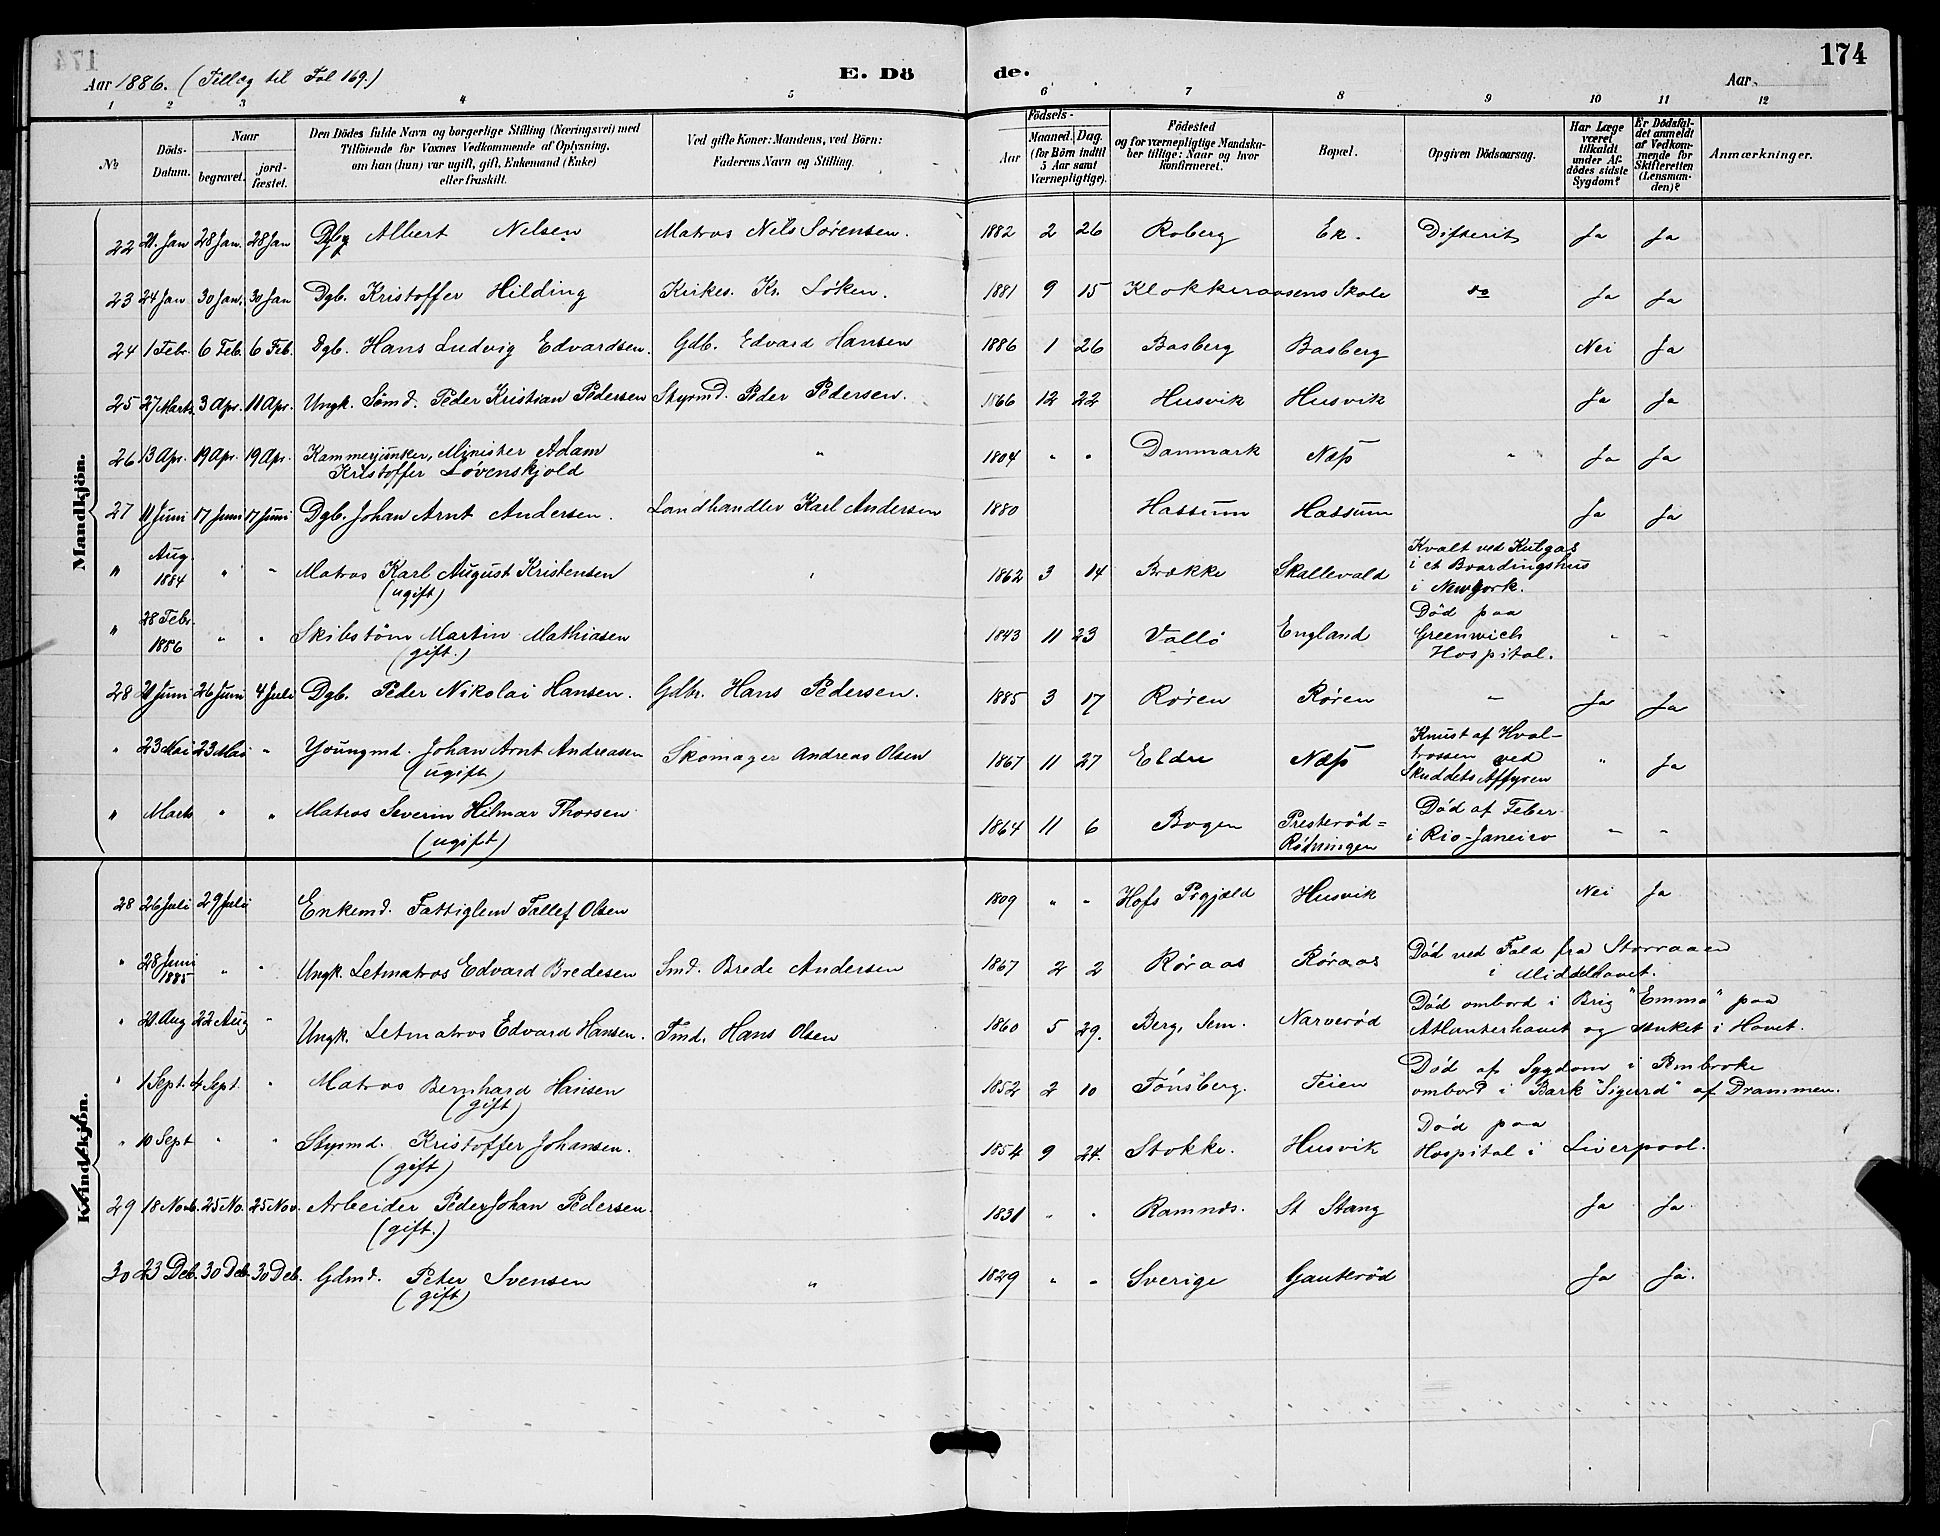 174
Aar 1886. (Tillæg til Fol 169.) E. Dö de. Aar
1 2 3 4 5 6 7 8 9 10 11 12
№ Döds-Datum. Naar begravet. jordfæstet. Den Dödes fulde Navn og borgerlige Stilling (Næringsvei) med Tilföiende for Voxnes Vedkommende af Oplysning, om han (hun) var ugift, gift, Enkemand (Enke) eller fraskilt. Ved gifte Koner: Mandens, ved Börn: Faderens Navn og Stilling. Födsels- Aar Maaned. Dag. (for Börn indtil 5 Aar samt Værnepligtige). Födested og for værnepligtige Mandskaber tillige: Naar og hvor konfirmeret. Bopæl. Opgiven Dödsaarsag. Har Læge været tilkaldt under Afdödes sidste Sygdom? Er Dödsfaldet anmeldt af Vedkommende for Skifteretten (Lensmanden)? Anmærkninger.
Mandkjön.
22 21. Jan 28 Jan. 28 Jan Dgb Albert Nelsen Matros Nils Sørensen. 1882 2 26 Roberg Ek. Difterit Ja Ja
23 24 Jan 30 Jan. 30 Jan Dgb. Kristoffer Hilding Kirkes. Kr. Løken. 1881 9 15 Klokkeraasens Skole do Ja Ja
24 1 Febr. 6 Feb. 6 Feb. Dgb. Hans Ludvig Edvardsen. Gdb. Edvard Hansen 1886 1 26 Basberg Basberg Nei Ja
25 27 Marts 3 Apr. 11 Apr. Ungk. Sømd. Peder Kristian Pedersen Styrmd. Peder Pedersen. 1866 12 22 Husvik Husvik Ja Ja
26 13 Apr. 19 Apr. 19 Apr. Kammerjunker, Minister Adam " 1804 " " Danmark Næss " Ja Ja
Kristoffer Løvenskjold
27 11 Juni 17 Juni 17 Juni Dgb. Johan Arnt Andersen. Landhandler Karl Andersen 1880 Hassum Hassum Ja Ja
" Aug. 1884 " " Matros Karl August Kristensen " 1862 3 14 Brække Skallevald Kvalt ved Kulgas
(ugift) i et Boardingshus
i New York.
" 28 Febr. 1886 " " Skibstøm Martin Mathiasen 1843 11 23 Vallö England Død paa
(gift.) Greenwich " "
Hospital.
28 21 Juni 26 Juni 4 Juli Dgb. Peder Nikolai Hansen. Gdbr. Hans Pedersen. 1885 3 17 Røren Røren " Ja Ja
" 23 Mai 23 Mai " Youngmd. Johan Arnt Andreasen Skomager Andreas Olsen 1867 11 27 Eldre Næss Knust af Hval-
(ugift) trossen ved " Ja
Skuddets Affyren
" Marts " " Matros Severin Hilmar Thorsen 1864 11 6 Bogen Presterød= Død af Feber
(ugift) Rødningen i Rio-Janeiro " "
Kvindekjön.
28 26 Juli 29 Juli Enkemd. Fattiglem Tallef Olsen 1809 " " Hofs Prgjæld Husvik Nei Ja
" 28 Juni 1885 " " Ungk. Letmatros Edvard Bredesen Smd. Brede Andersen 1867 2 2 Røraas Røraas Død ved Fald fra Storraaen
i Middelhavet.
" 21 Aug 22 Aug " Ungk. Letmatros Edvard Hansen. Tmd. Hans Olsen 1860 5 29. Berg, Sem. Narverød Død ombord i Brig "Emma" paa
Atlanterhavet og sænket i Havet.
" 1 Sept. 4 Sept. " Matros Bernhard Hansen 1852 2 10 Tønsberg. Teien Død af Sygdom i Pembroke
(gift) ombord i Bark "Sigurd" af Drammen.
" 10 Sept " " Stymd. Kristoffer Johansen. 1854 9 24. Stokke. Husvik Død paa
(gift) Hospital i Liverpool.
29 18 Novb. 25 No. 25 Nov. Arbeider Peder Johan Pedersen. 1831 " " Ramnds. St Stang Ja Ja
(gift.)
30 23 Deb. 30 Deb. 30 Deb. Gdmd. Peter Svensen " 1829 " " Sverige Gauterød Ja Ja.
(gift)